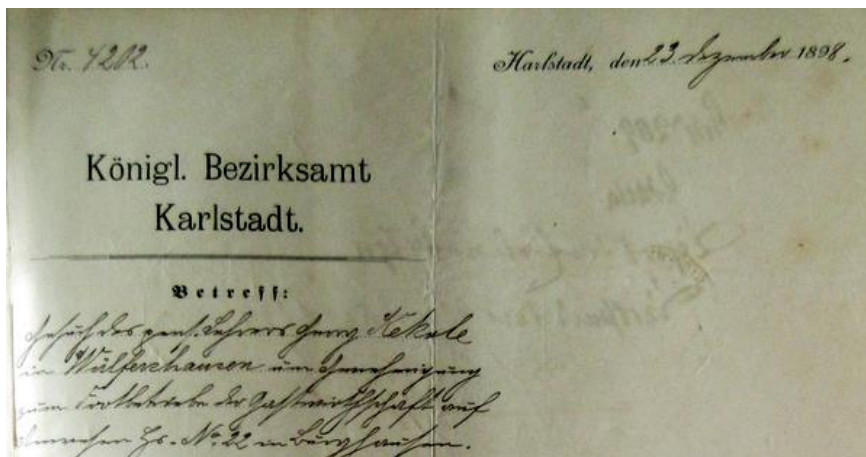 Nr. 4202.
Karlstadt, den 23. Dezember 1898.
Königl. Bezirksamt
Karlstadt.
Betreff:
Gesuch des pens. Lehrers Georg Kekale
in Wülfershausen um Genehmigung
zum Fortbetriebe der Gastwirthschaft auf
Anwesen Hs.-No. 22 in Burghausen.